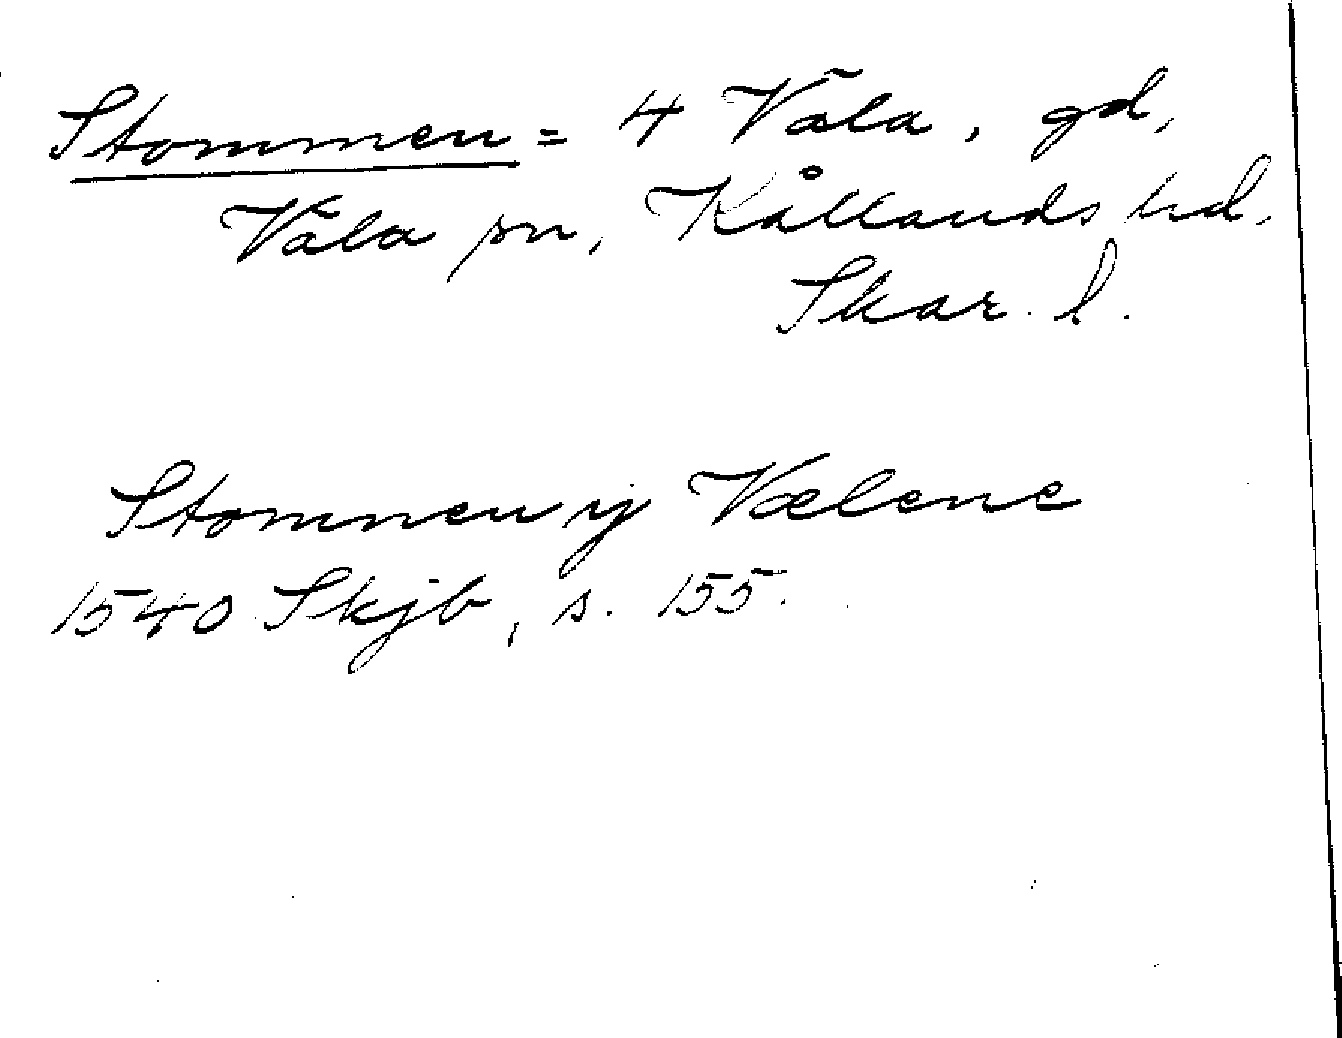 Stommen = 4 Väla, gd,
Väla sn, Kållands hd,
Skar. l.
Stomnen ij Vælene
1540 Skjb, s. 155.